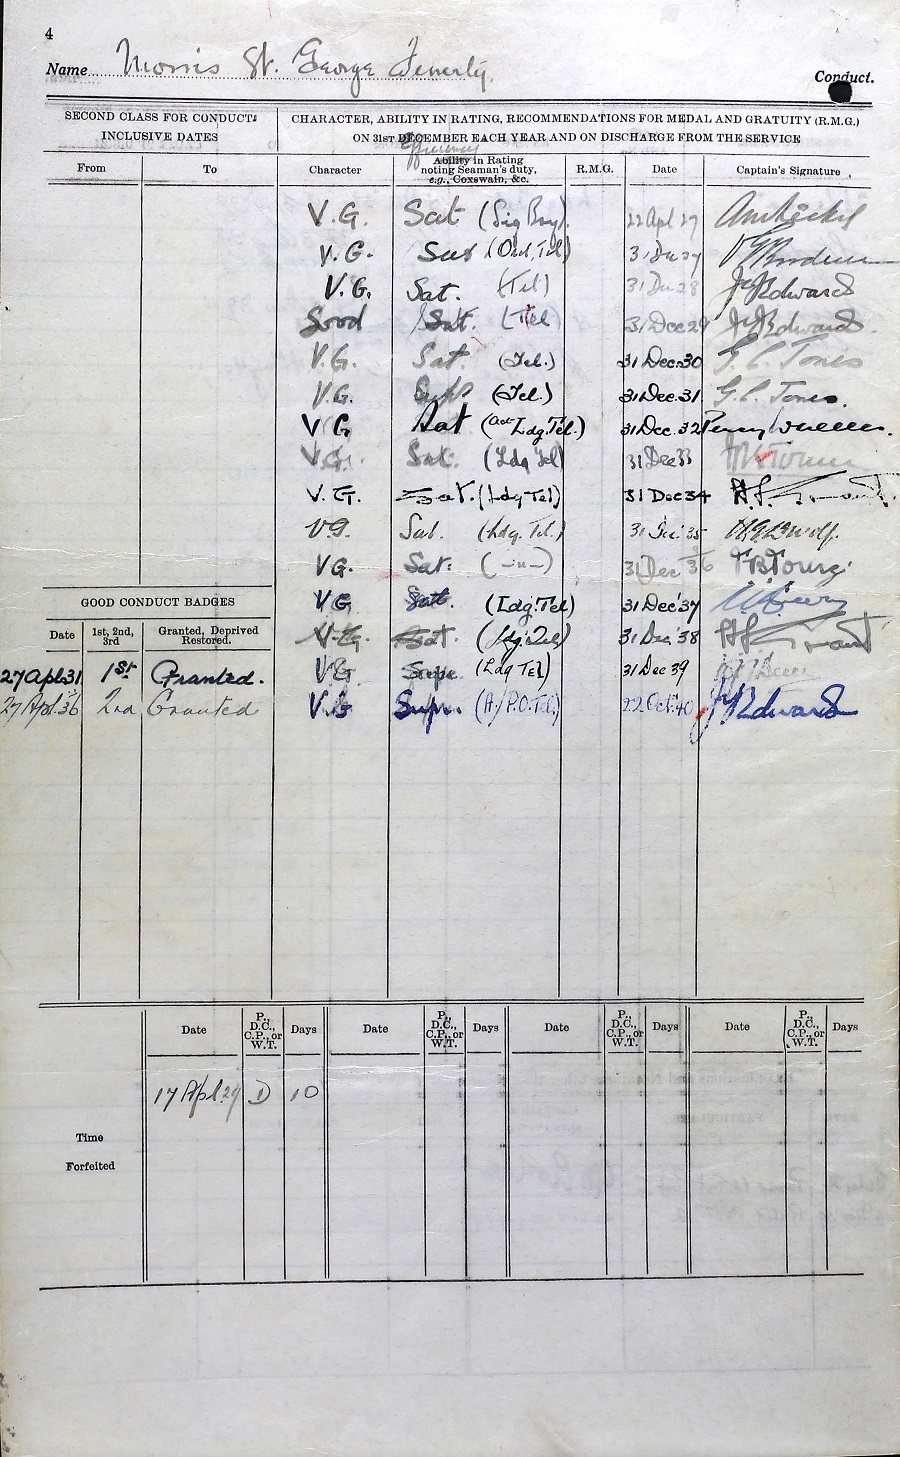 4
Name Morris St. George Fenerty. Conduct.
SECOND CLASS FOR CONDUCT:
INCLUSIVE DATES
From To
CHARACTER, ABILITY IN RATING, RECOMMENDATIONS FOR MEDAL AND GRATUITY (R.M.G.)
ON 31ST DECEMBER EACH YEAR AND ON DISCHARGE FROM THE SERVICE
Efficiency
Character Ability in Rating R.M.G. Date Captain's Signature
noting Seaman's duty,
e.g., Coxswain, &c.
V.G. Sat (Sig Boy) 22 Apl 27
V.G. Sat (Ord. Tel) 31 Dec 27
V.G. Sat. (Tel) 31 Dec 28 Edwards
Good Sat. (Tel) 31 Dec 29 Edwards.
V.G. Sat. (Tel.) 31 Dec. 30 G.C. Jones
V.G. (Tel.) 31 Dec. 31. G.C. Jones.
V G Sat (Act Ldg. Tel.) 31 Dec. 32
V.G. Sat. (Ldg Tel) 31 Dec 33
V.G. Sat. (Ldg Tel) 31 Dec 34
V.G. Sat. (Ldg. Tel.) 31 Dec '35
VG. Sat. (-"-) 31 Dec 36
VG Sat. (Ldg. Tel) 31 Dec '37
V.G. Sat. (Ldg. Tel) 31 Dec '38
VG Supr. (Ldg Tel) 31 Dec 39
V.G Supr. (A/P.O.Tel.) 22 Oct. 40 Edwards
GOOD CONDUCT BADGES
Date 1st, 2nd, 3rd Granted, Deprived Restored.
27 Apl 31 1st Granted.
27 Apl. 36 2nd Granted
Time
Forfeited
Date P., D.C., C.P., or W.T. Days Date P., D.C., C.P., or W.T. Days Date P., D.C., C.P., or W.T. Days Date P., D.C., C.P., or W.T. Days
17 Apl. 29 D 10